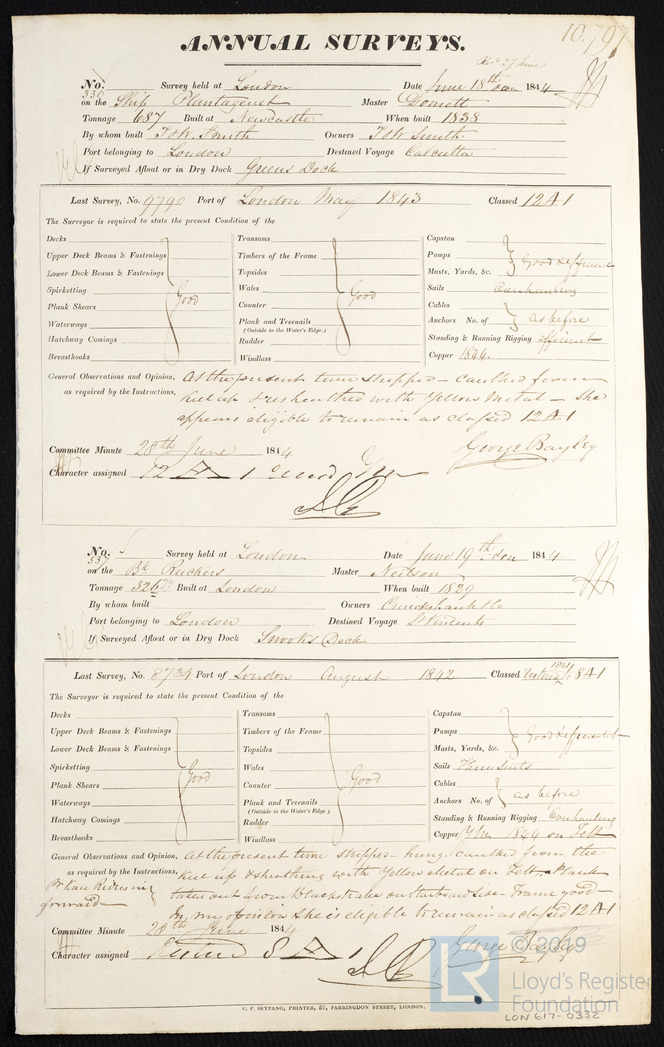 10.797
ANNUAL SURVEYS.
No. 336 Survey held at London Date June 18th 1844
on the Ship Plantagenet Master Domett
Tonnage 687 Built at Newcastle When built 1838
By whom built T & W. Smith Owners T & W. Smith
Port belonging to London Destined Voyage Calcutta
If Surveyed Afloat or in Dry Dock Greens Dock
Last Survey, No. 9790 Port of London May 1843 Classed 12 A 1
The Surveyor is required to state the present Condition of the
Decks Transoms Capstan
Upper Deck Beams & Fastenings Timbers of the Frame Pumps Good & efficient
Lower Deck Beams & Fastenings Topsides Masts, Yards, &c.
Spirketting Wales Sails Overhauling
Plank Shears Good Counter Good Cables
Waterways Plank and Treenails Anchors No. of as before
(Outside to the Water's Edge.)
Hatchway Comings Rudder Standing & Running Rigging efficient
Breasthooks Windlass Copper 1844.
General Observations and Opinion, At the present time stripped - caulked from
as required by the Instructions, keel up & resheathed with Yellow Metal - She
appears eligible to remain as classed 12 A.1
George Bayley
Committee Minute 28th June 1844
Character assigned 12 A 1
No. 337 Survey held at London Date June 19th 1844
on the Bk Ruckers Master Neilson
Tonnage 326 Built at London When built 1829
By whom built Owners Cruikshank & Co
Port belonging to London Destined Voyage St Vincents
If Surveyed Afloat or in Dry Dock Snooks Dock
Last Survey, No. 8734 Port of London August 1842 Classed 1841 8 A 1
The Surveyor is required to state the present Condition of the
Decks Transoms Capstan
Upper Deck Beams & Fastenings Timbers of the Frame Pumps Good & efficient
Lower Deck Beams & Fastenings Topsides Masts, Yards, &c.
Spirketting Wales Sails Three Suits
Plank Shears Good Counter Good Cables
Waterways Plank and Treenails Anchors No. of as before
(Outside to the Water's Edge)
Hatchway Comings Rudder Standing & Running Rigging Overhauling
Breasthooks Windlass Copper Y M 1844 on Felt
General Observations and Opinion, At the present time stripped - hung, caulked from the
as required by the Instructions, keel up & sheathing with Yellow Metal on Felt, Plank
taken out down Blackstrake on Starboard Side - Frame good -
forward
In my opinion she is eligible to remain as classed 12 A 1
Committee Minute 28th June 1844
George Bayley
Character assigned 8 A 1
C. F. SEYFANG, PRINTER, 57, FARRINGDON STREET, LONDON.
LR
© 2019
Lloyd's Register
Foundation
LON 617-0332